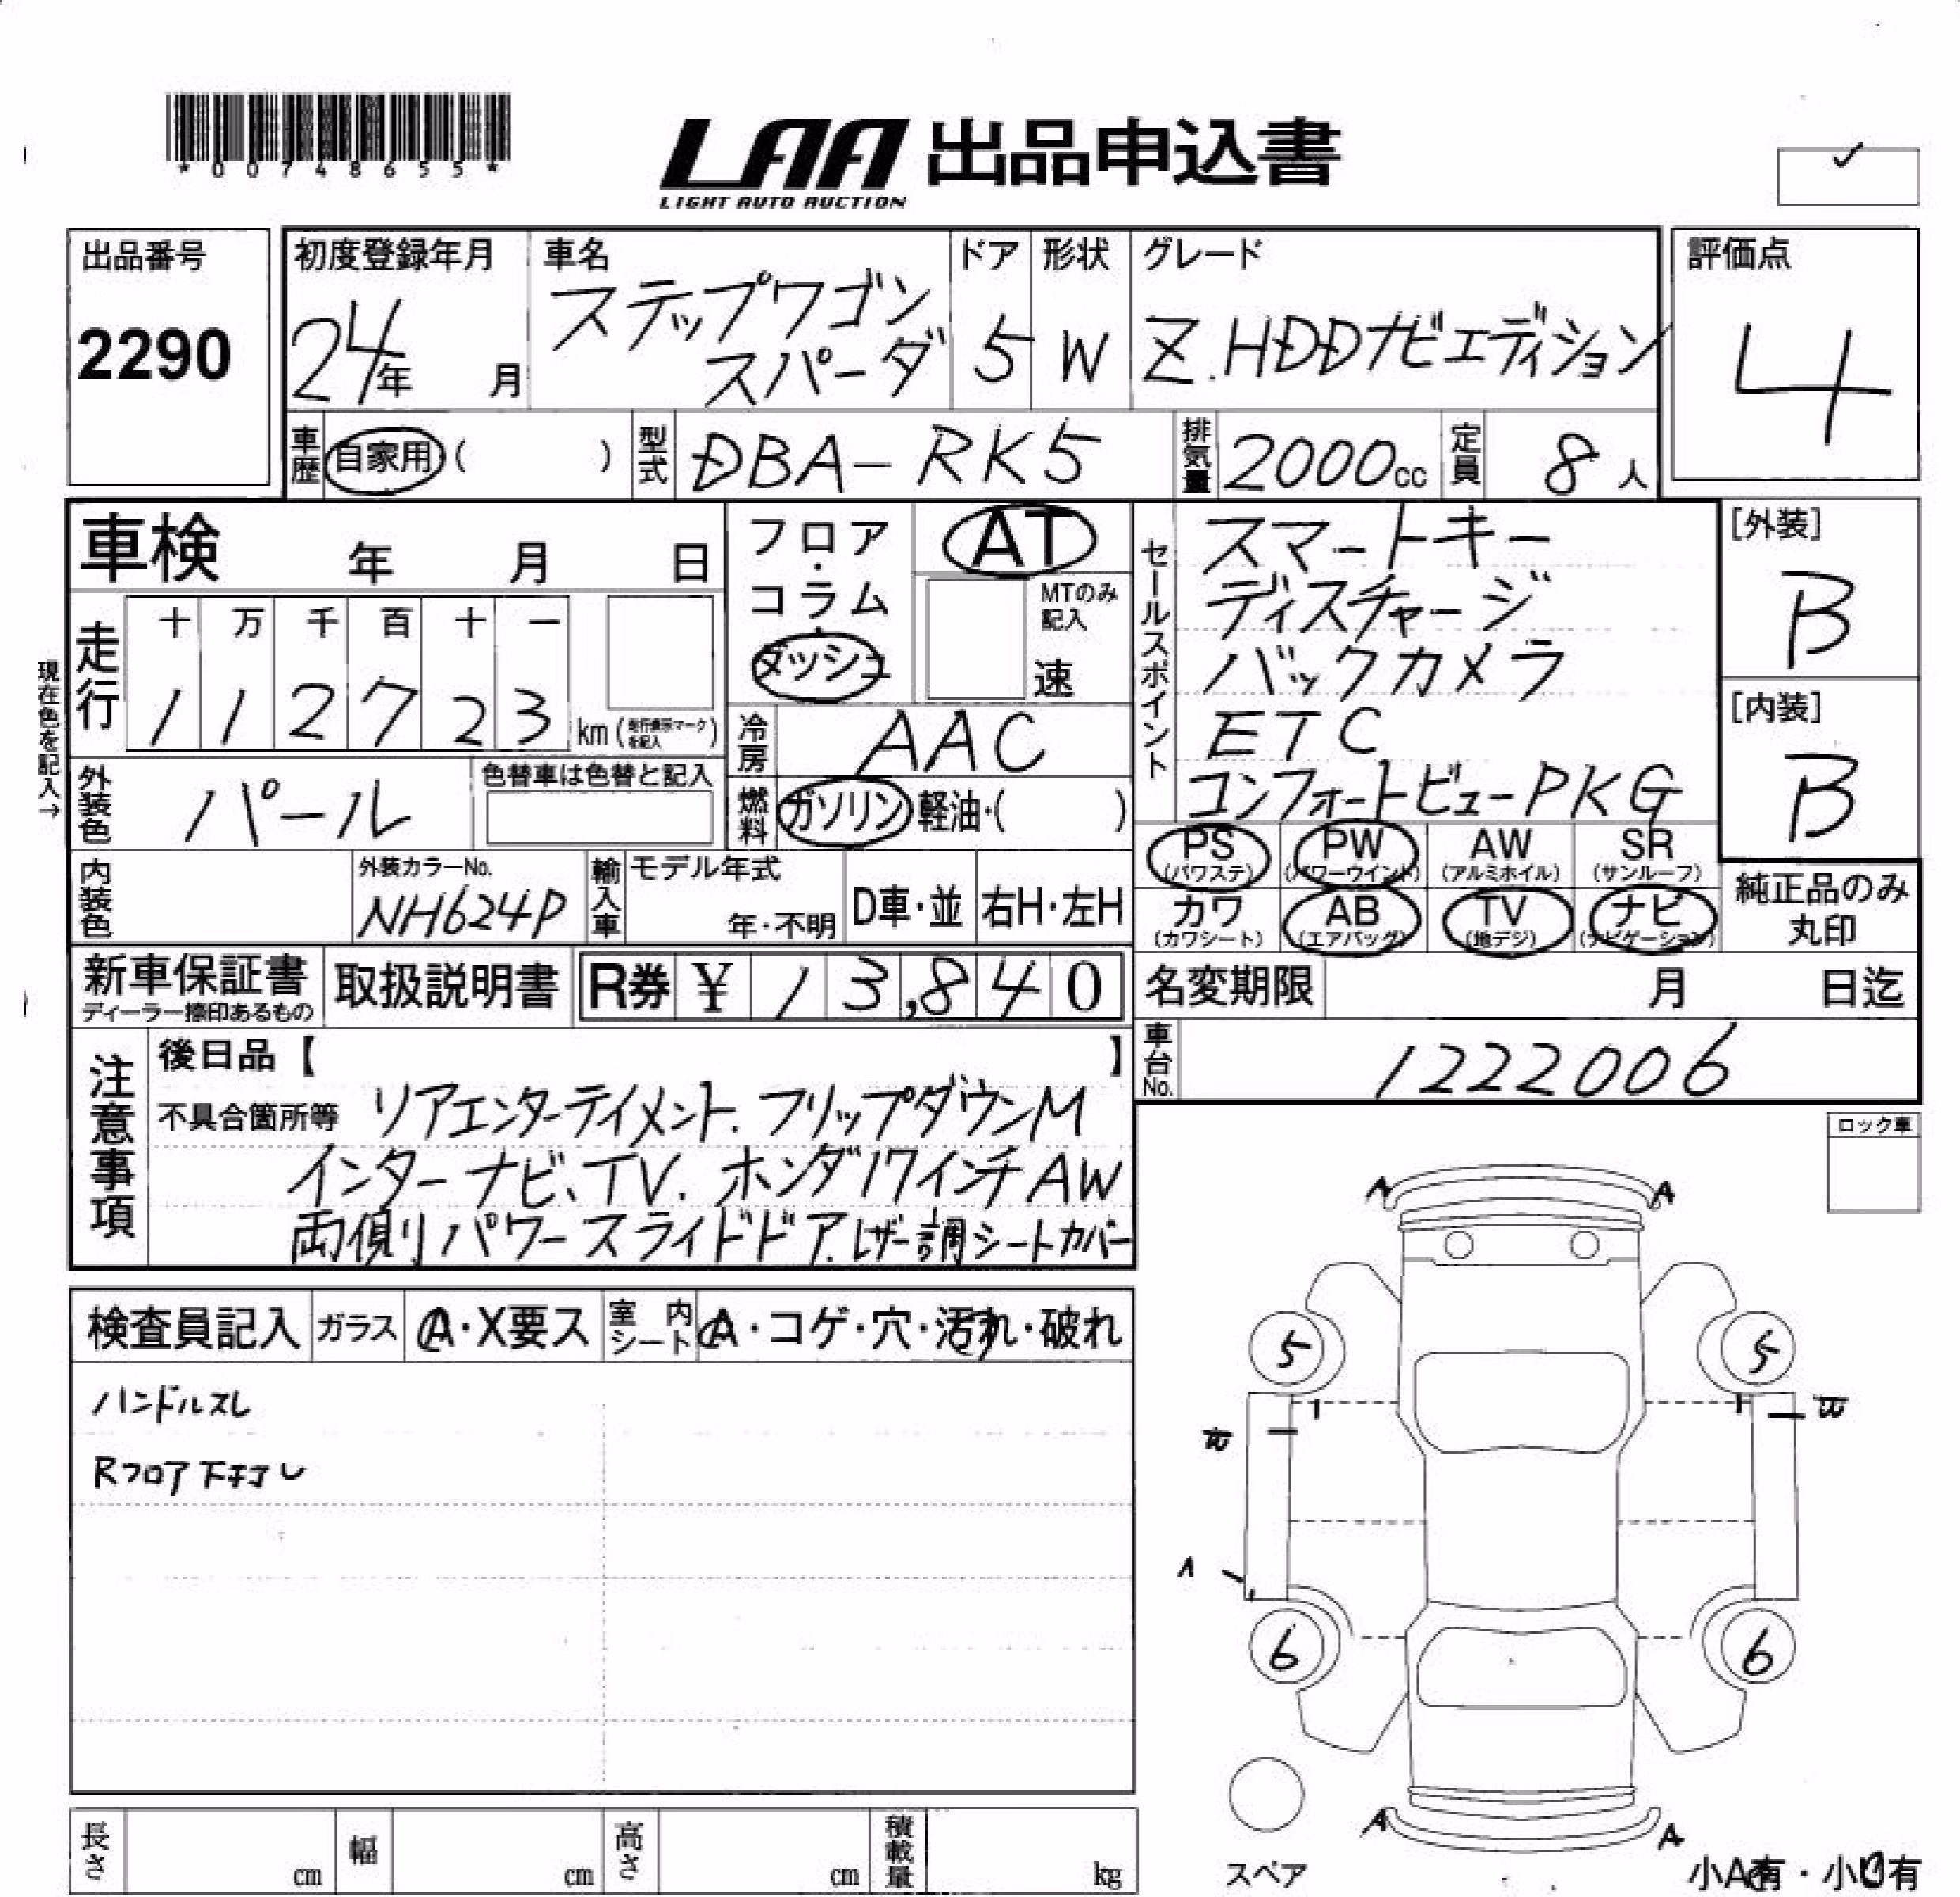 *00748655*
LAA 出品申込書
LIGHT AUTO AUCTION
✓
出品番号
2290
初度登録年月
24年 月
車名
ステップワゴン
スパーダ
ドア
5
形状
W
グレード
Z.HDDナビエディション
評価点
4
車歴 自家用 ( )
型式 DBA-RK5
排気量 2000cc
定員 8人
車検 年 月 日
現在色を記入→
走行
十 万 千 百 十 一
1 1 2 7 2 3 km (走行表示マークを記入)
フロア・
コラム・
ダッシュ
AT
MTのみ
記入
速
冷房 AAC
燃料 ガソリン 軽油・( )
セールスポイント
スマートキー
ディスチャージ
バックカメラ
ETC
コンフォートビューPKG
[外装]
B
[内装]
B
外装色 パール
色替車は色替と記入
内装色
外装カラーNo.
NH624P
輸入車
モデル年式
年・不明
D車・並
右H・左H
PS
(パワステ)
PW
(パワーウインド)
AW
(アルミホイル)
SR
(サンルーフ)
カワ
(カワシート)
AB
(エアバッグ)
TV
(地デジ)
ナビ
(ナビゲーション)
純正品のみ
丸印
新車保証書
ディーラー捺印あるもの
取扱説明書
R券 ¥ 1 3,8 4 0
名変期限 月 日迄
車台No. 1222006
注意事項
後日品【 】
不具合箇所等 リアエンターテイメント.フリップダウンM
インターナビ、TV. ホンダ17インチAW
両側リパワースライドドア.レザー調シートカバー
ロック車
検査員記入
ガラス A・X要ス
室内シート A・コゲ・穴・汚れ・破れ
ハンドルスレ
Rフロア下キズ
A A
5 5
A
6 6
A A
スペア
小A有・小U有
長さ cm
幅 cm
高さ cm
積載量 kg